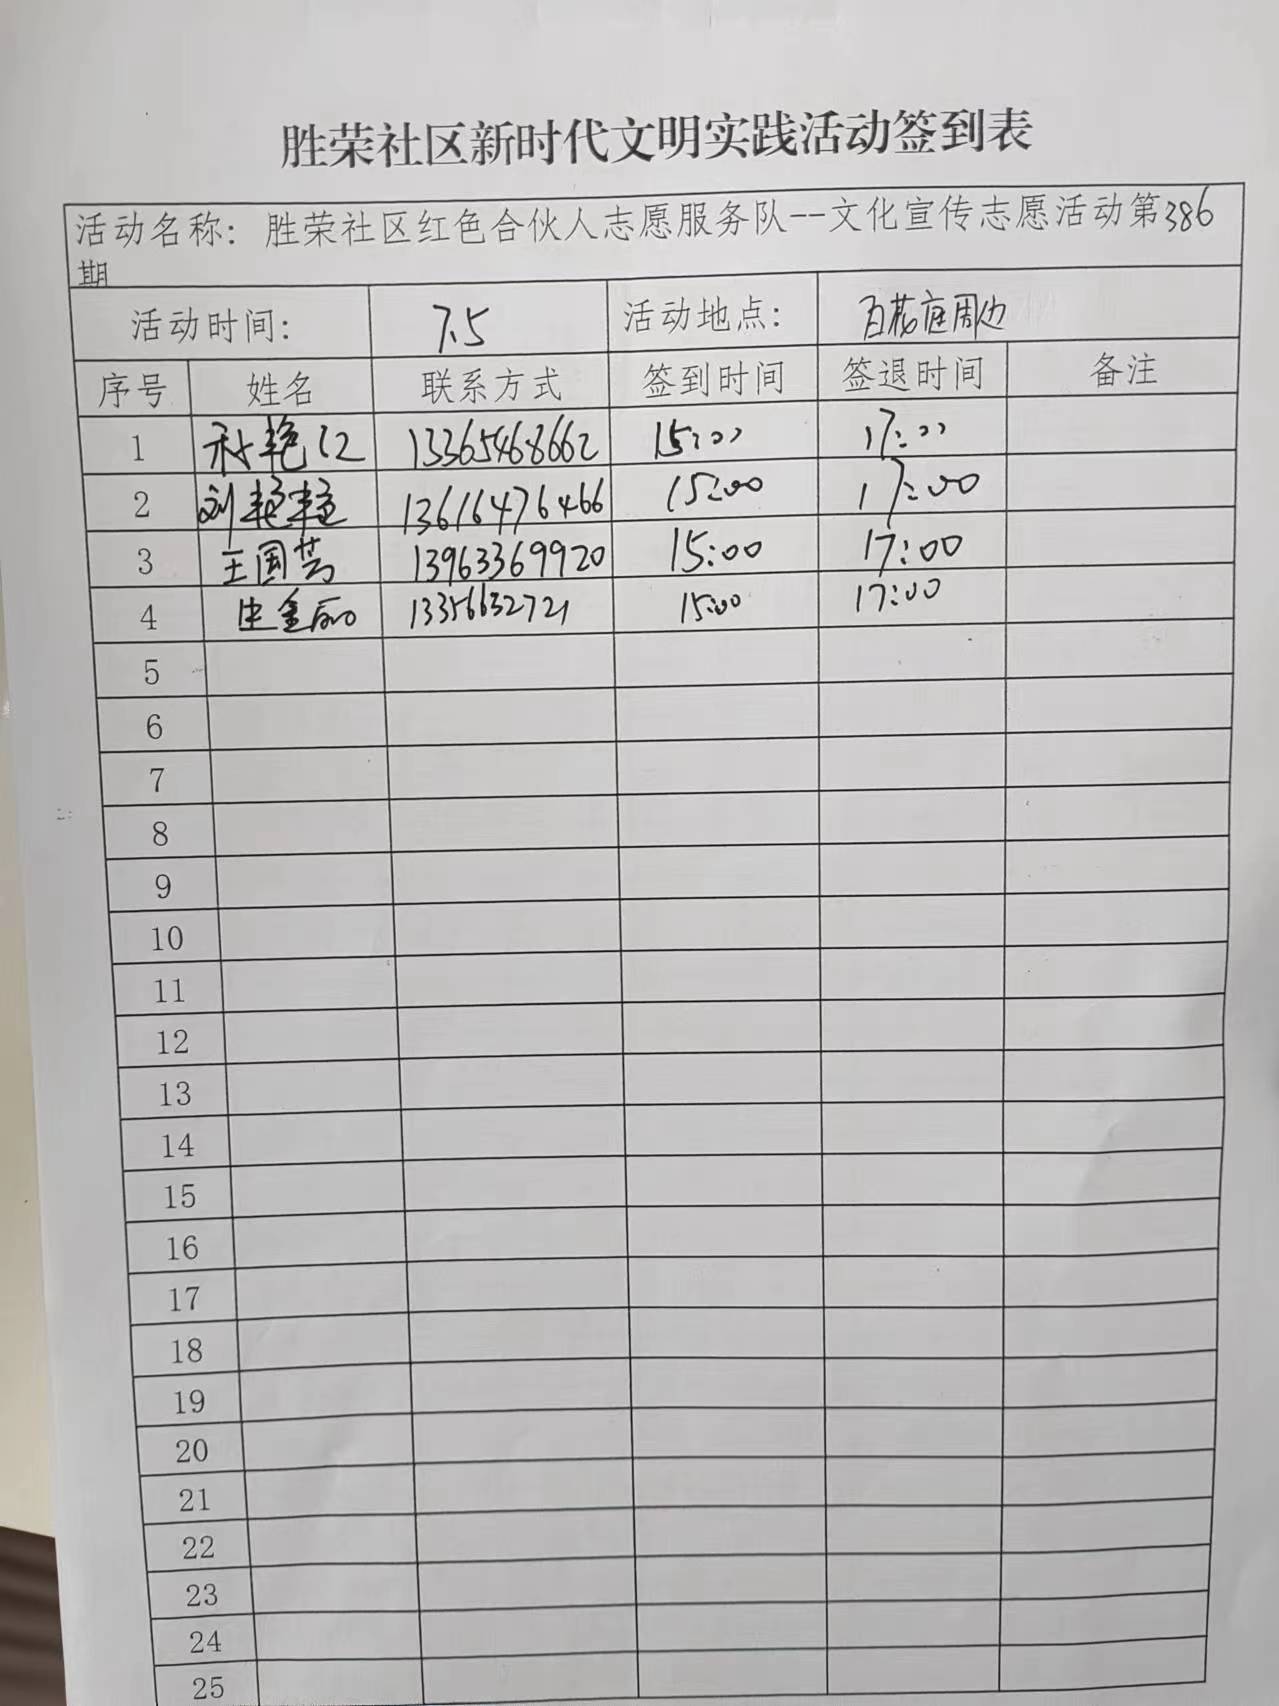 胜荣社区新时代文明实践活动签到表
活动名称：胜荣社区红色合伙人志愿服务队--文化宣传志愿活动第386
期
活动时间： 7.5 活动地点： 百花庭周边
序号 姓名 联系方式 签到时间 签退时间 备注
1 艳红 13365468662 15:00 17:00
2 刘艳艳 13616476466 15:00 17:00
3 王国芳 13963369920 15:00 17:00
4 金丽 13356632721 15:00 17:00
5
6
7
8
9
10
11
12
13
14
15
16
17
18
19
20
21
22
23
24
25